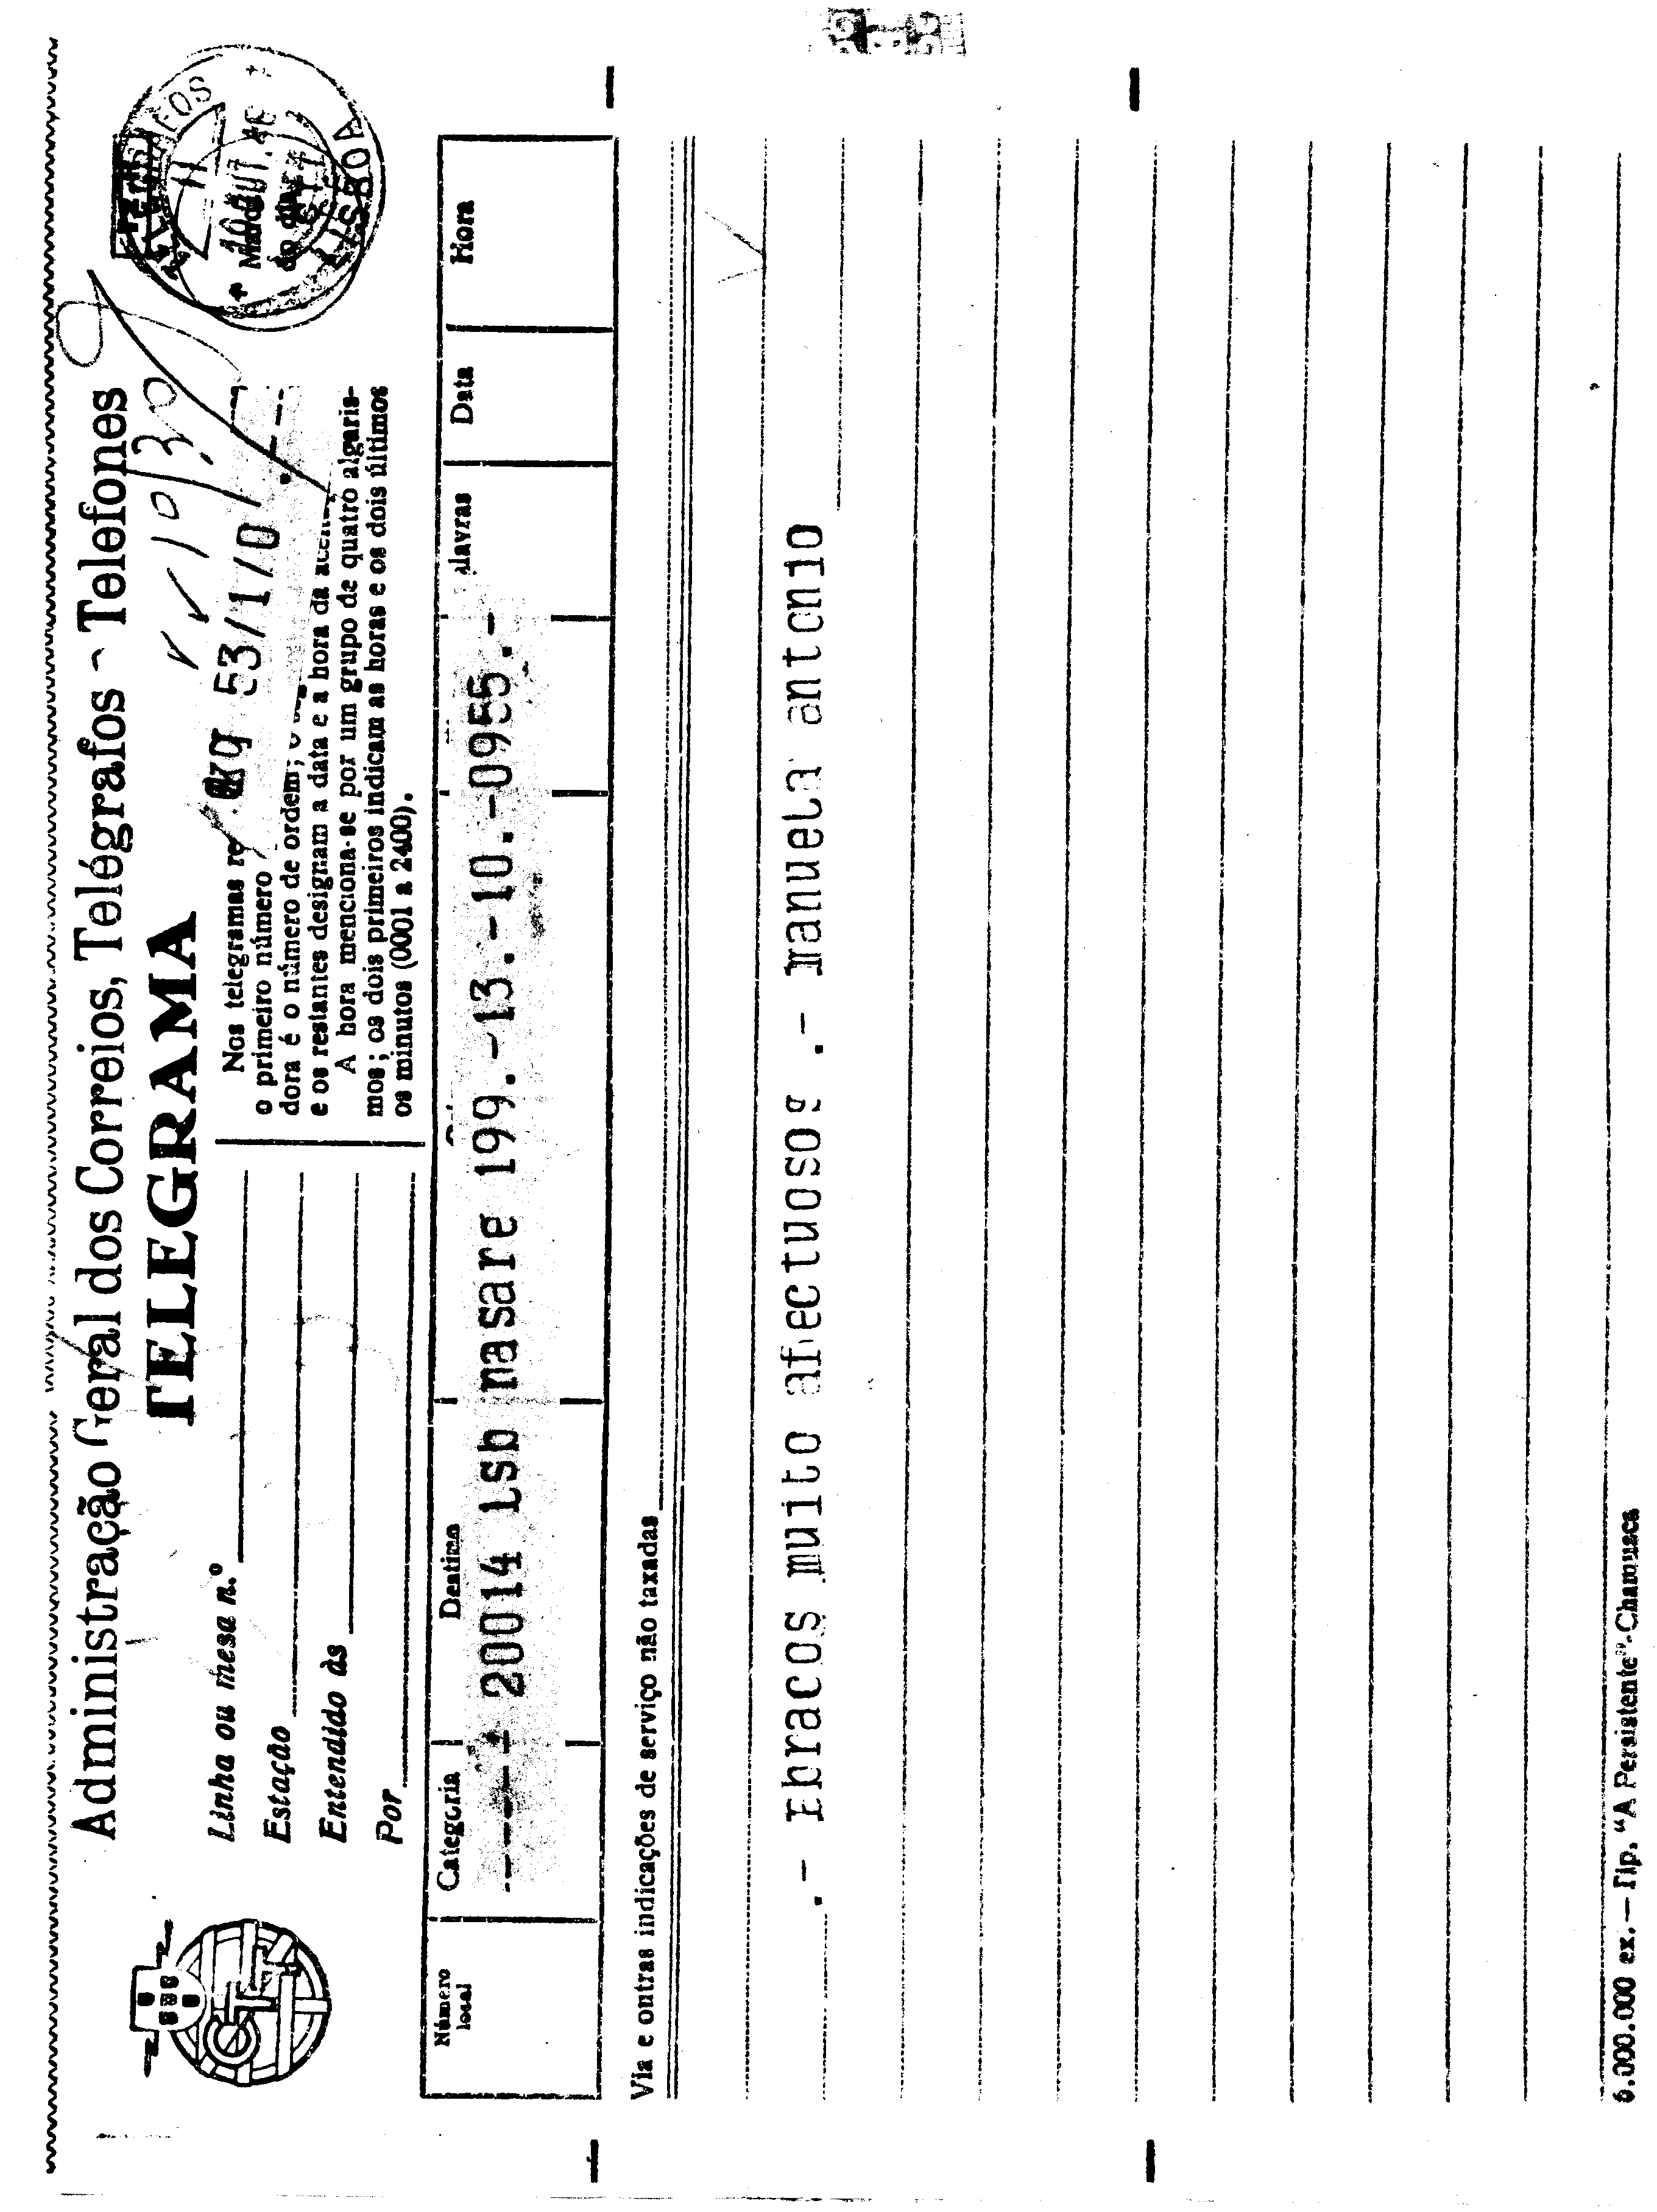 Administração Geral dos Correios, Telégrafos - Telefones
TELEGRAMA
Linha ou mesa n.º
Estação
Entendido às
Por
Nos telegramas
o primeiro número
dora é o número de ordem;
e os restantes designam a data e a hora da
A hora menciona-se por um grupo de quatro algaris-
mos; os dois primeiros indicam as horas e os dois últimos
os minutos (0001 a 2400).
53/1/0
10/30
LISBOA
Número local
Categoria
Destino
alavras
Data
Hora
20014 lsb nasare 199.-13.-10.-0955.-
Via e outras indicações de serviço não taxadas
.- Ebracos muito afectuosos .- manuela antonio
6.000.000 ex. — Tip. "A Persistente"-Chamusca